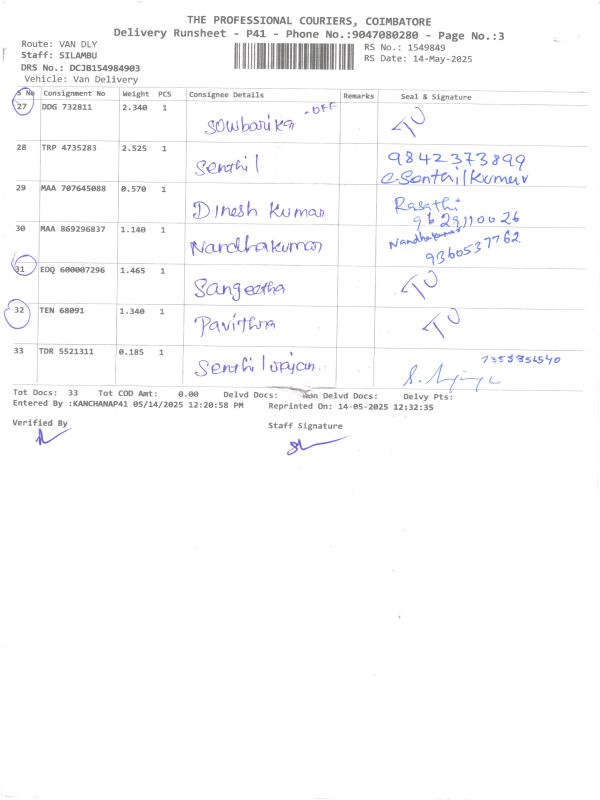 THE PROFESSIONAL COURIERS, COIMBATORE
Delivery Runsheet - P41 - Phone No.:9047080280 - Page No.:3
Route: VAN DLY
Staff: SILAMBU
DRS No.: DCJB154984903
Vehicle: Van Delivery
RS No.: 1549849
RS Date: 14-May-2025
S No Consignment No Weight PCS Consignee Details Remarks Seal & Signature
27 DDG 732811 2.340 1 Sowbarika -OFF
28 TRP 4735283 2.525 1 Senthil 9842373899
C.Senthilkumar
29 MAA 707645088 0.570 1 Dinesh Kumar Rasathi
9629110026
30 MAA 869296837 1.140 1 Nandhakumar Nandhakumar
9360537762
31 EDQ 600007296 1.465 1 Sangeetha
32 TEN 68091 1.340 1 Pavithra
33 TDR 5521311 0.185 1
Tot Docs: 33 Tot COD Amt: 0.00 Delvd Docs: Non Delvd Docs: Delvy Pts:
Entered By :KANCHANAP41 05/14/2025 12:20:58 PM Reprinted On: 14-05-2025 12:32:35
Verified By
Staff Signature